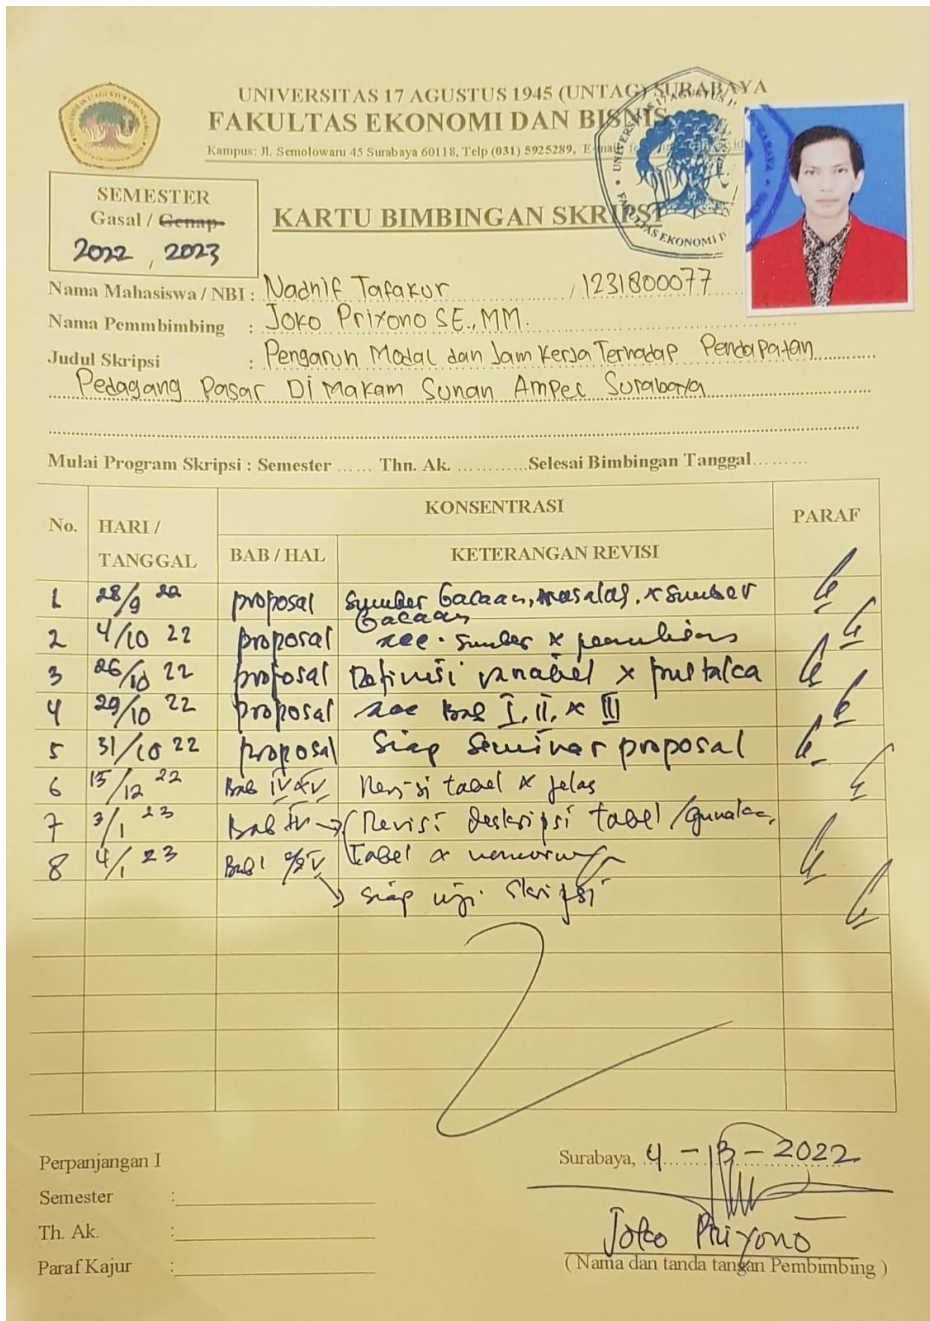 UNIVERSITAS 17 AGUSTUS 1945 (UNTAG) SURABAYA
FAKULTAS EKONOMI DAN BISNIS
Kampus: Jl. Semolowaru 45 Surabaya 60118, Telp (031) 5925289,
SEMESTER
Gasal / Genap
2022, 2023
KARTU BIMBINGAN SKRIPSI
Nama Mahasiswa / NBI : Nadhif Tafakur / 1231800077
Nama Pemmbimbing : Joko Priyono SE., MM.
Judul Skripsi : Pengaruh Modal dan Jam Kerja Terhadap Pendapatan
Pedagang Pasar Di Makam Sunan Ampel Surabaya
Mulai Program Skripsi : Semester ...... Thn. Ak. ............Selesai Bimbingan Tanggal.........
No. HARI / TANGGAL KONSENTRASI PARAF
BAB / HAL KETERANGAN REVISI
1 28/9 22 proposal Sumber bacaan, masalah, & sumber
bacaan
2 4/10 22 proposal acc. sumber & penulisan
3 26/10 22 proposal Definisi variabel & pustaka
4 29/10 22 proposal acc Bab I, II, & III
5 31/10 22 proposal Siap Seminar proposal
6 15/12 22 Bab IV & V Revisi tabel & jelas
7 3/1 23 Bab IV → (Revisi deskripsi tabel /
8 4/1 23 Bab I tabel &
→ siap uji skripsi
Perpanjangan I
Semester :
Th. Ak. :
Paraf Kajur :
Surabaya, 4 - - 2022
Joko Priyono
( Nama dan tanda tangan Pembimbing )